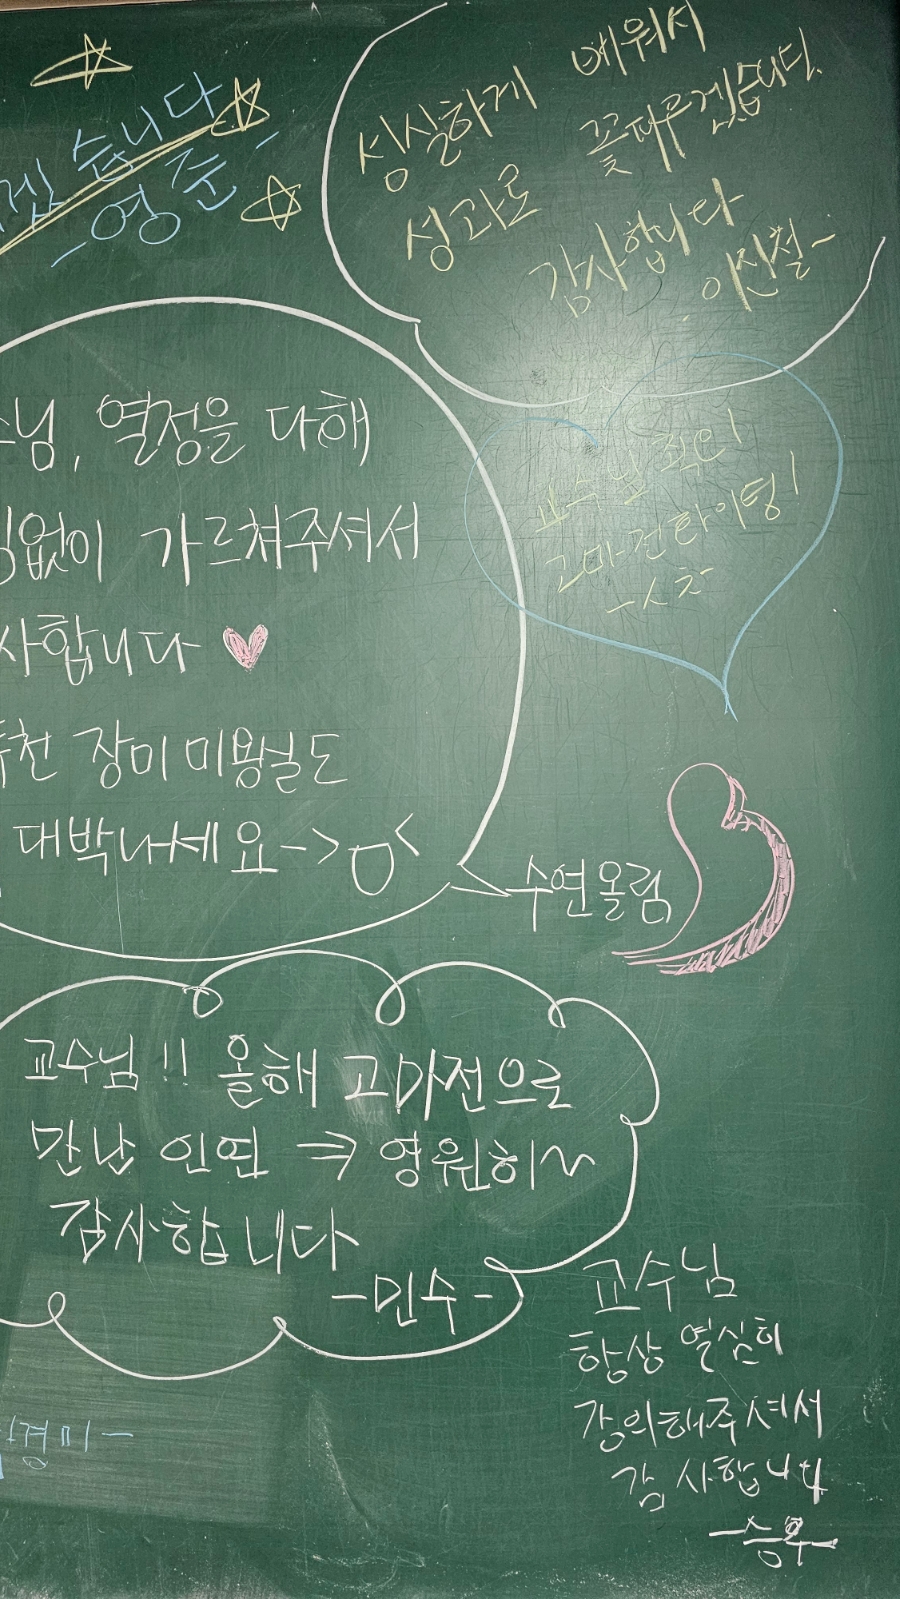 성실하게 배워서
성과로 꽃피우겠습니다.
감사합니다
이진철-
겠습니다
-영준-
수님, 열정을 다해
없이 가르쳐주셔서
사합니다 ♥
천 장미 미용실도
대박나세요->O<
수연올림
교수님 최고!
고마전 화이팅!
교수님!! 올해 고마전으로
만난 인연 => 영원히~
감사합니다
-민수-
경미-
교수님
항상 열심히
강의해주셔서
감사합니다
-승우-